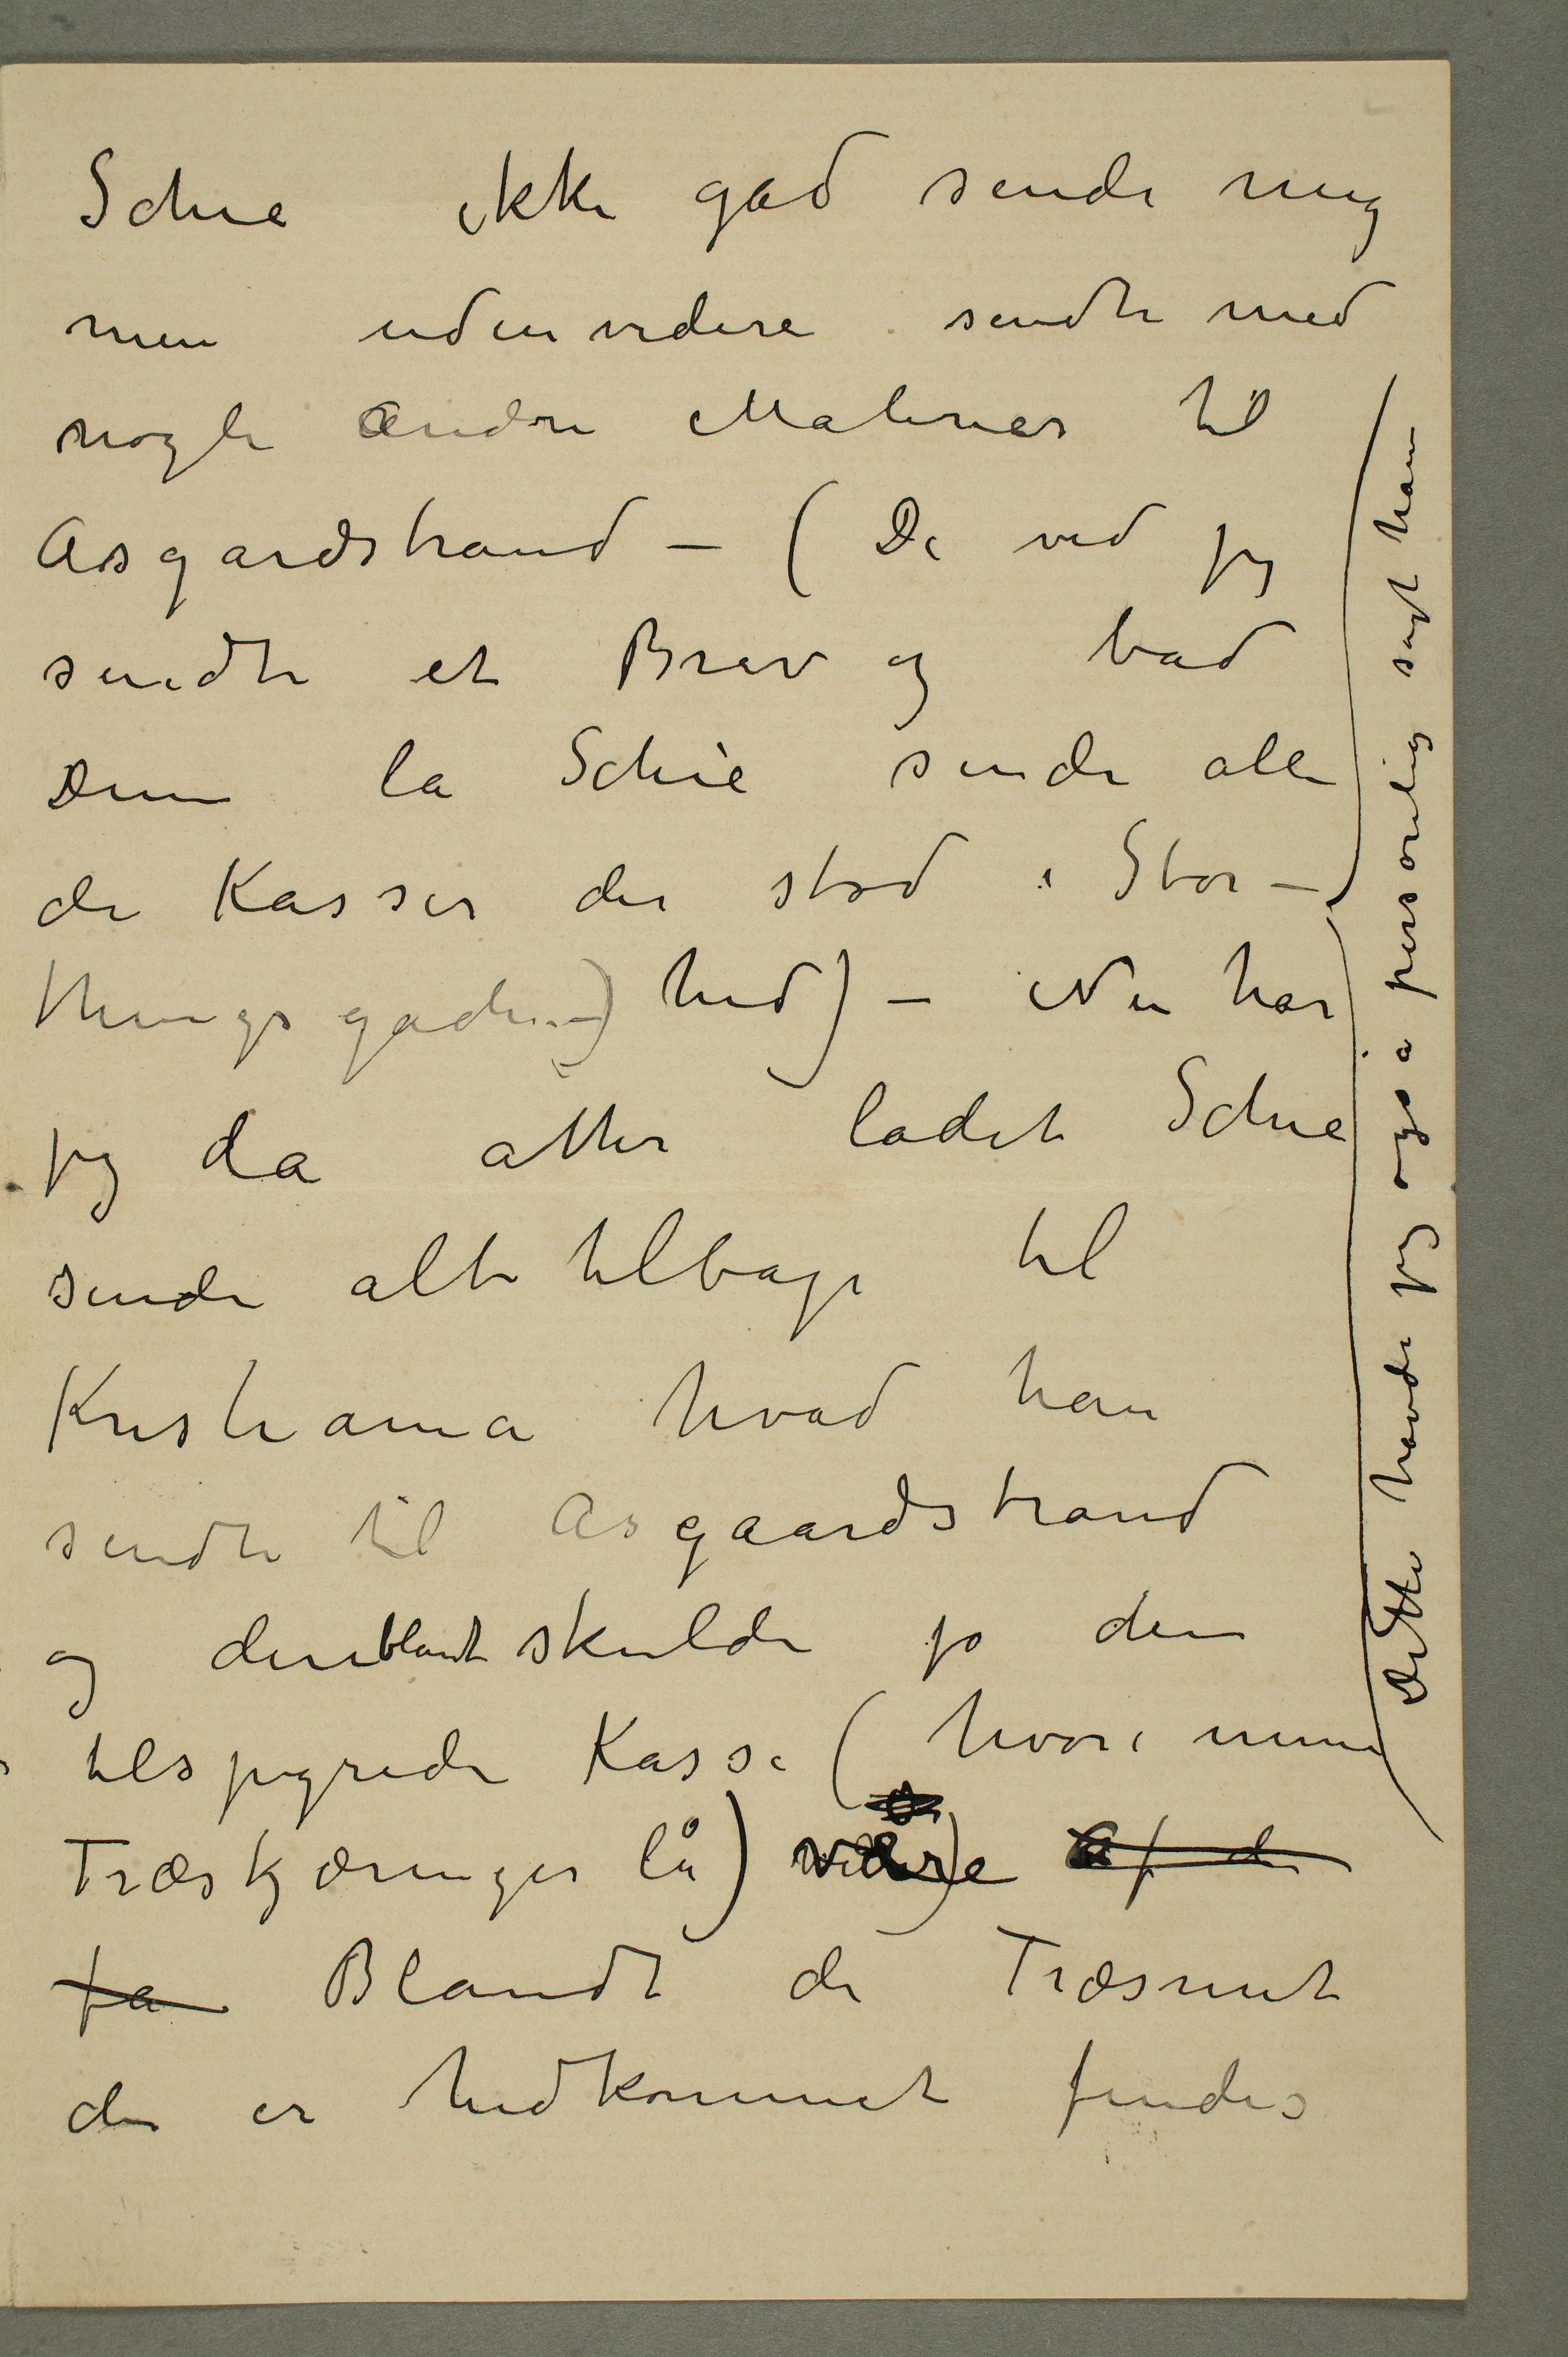 Schie ikke gad sende mig
men uden videre sendte med
nogle andre Malerier til
Asgardstrand – (De ved jeg
sendte et Brev og bad
Dem la Schie sende alle
de Kasser der stod i Stor-
thingsgaden –) hid) – Nu har
jeg da atter ladet Schie
sende alt tilbage til
Kristiania hvad han
sendte til Asgaardstrand
og deriblandt skulde jo den
tilspigrede Kasse (hvori mine
Træskjæringer lå) være Af de
fa Blandt de Træsnit
der er hidkommet findes
Dette havde jeg også personlig sagt ham